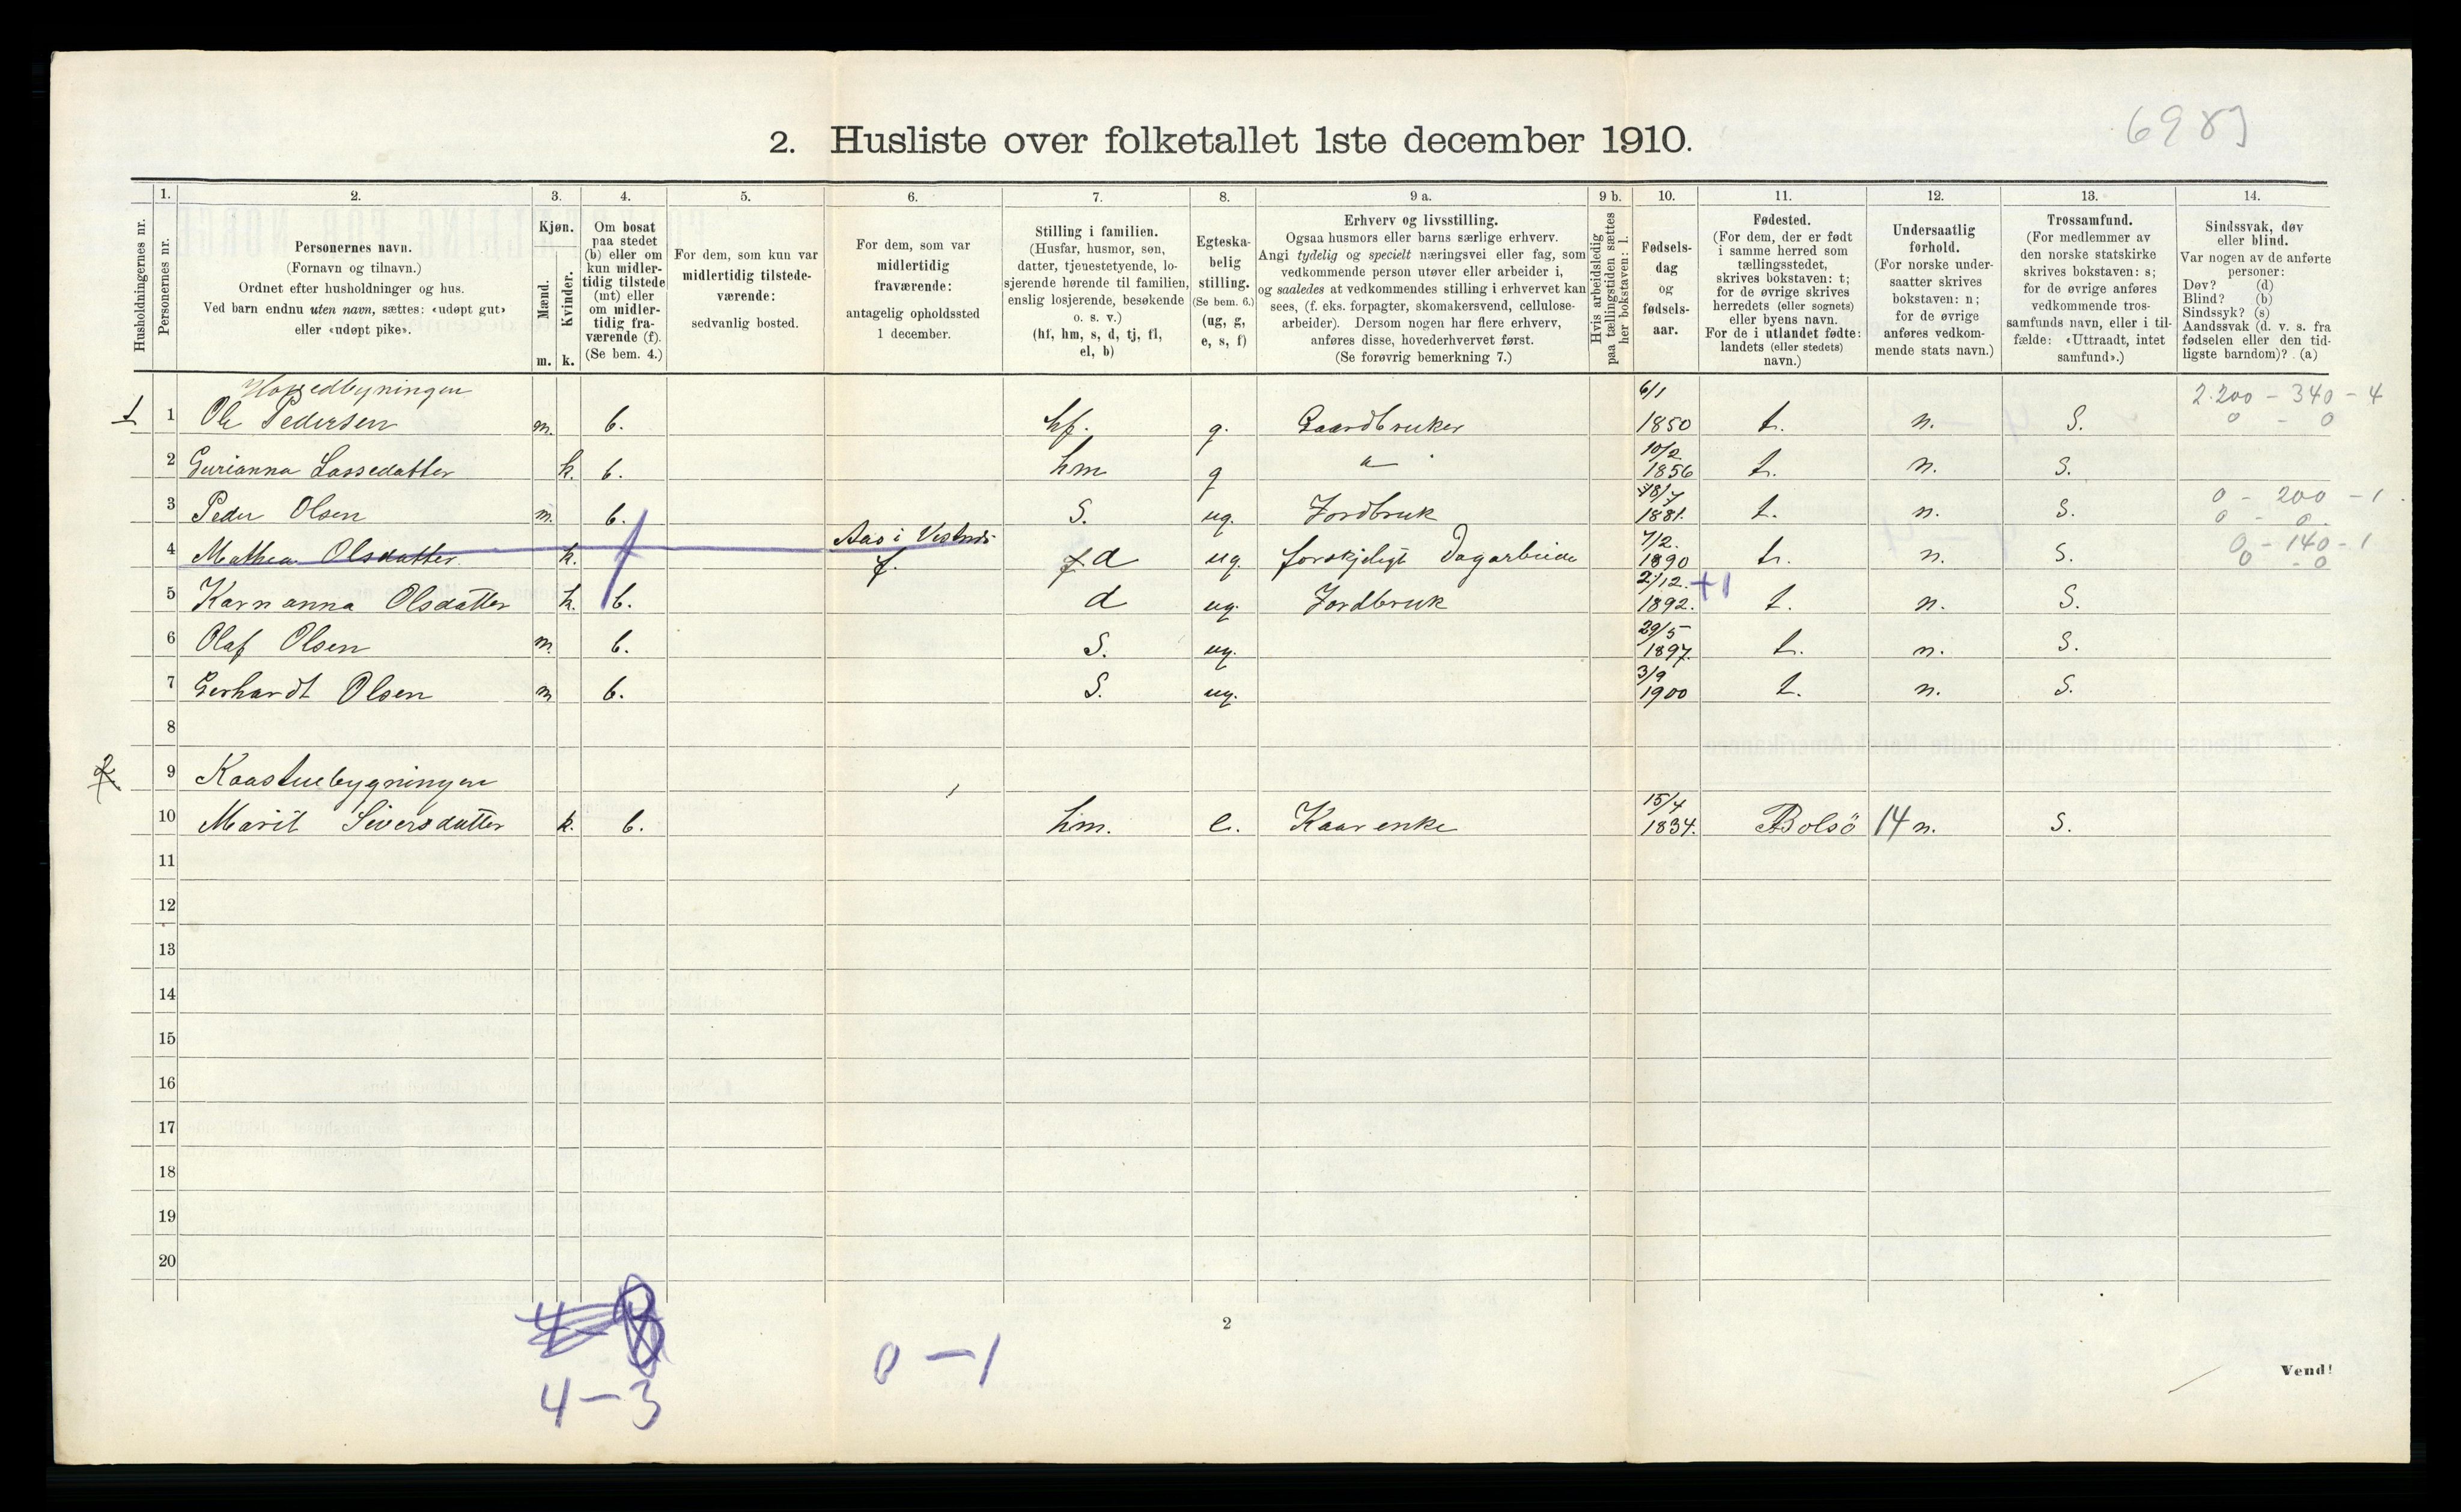 6983
2. Husliste over folketallet 1ste december 1910.
Husholdningernes nr.
1.
Personernes nr.
2.
Personernes navn.
(Fornavn og tilnavn.)
Ordnet efter husholdninger og hus.
Ved barn endnu uten navn, sættes: «udøpt gut»
eller «udøpt pike».
3.
Kjøn.
Mænd.
Kvinder.
m. k.
4.
Om bosat
paa stedet
(b) eller om
kun midler-
tidig tilstede
(mt) eller
om midler-
tidig fra-
værende (f).
(Se bem. 4.)
5.
For dem, som kun var
midlertidig tilstede-
værende:
sedvanlig bosted.
6.
For dem, som var
midlertidig
fraværende:
antagelig opholdssted
1 december.
7.
Stilling i familien.
(Husfar, husmor, søn,
datter, tjenestetyende, lo-
sjerende hørende til familien,
enslig losjerende, besøkende
o. s. v.)
(hf, hm, s, d, tj, fl,
el, b)
8.
Egteska-
belig
stilling.
(Se bem. 6.)
(ug, g,
e, s, f)
9 a.
Erhverv og livsstilling.
Ogsaa husmors eller barns særlige erhverv.
Angi tydelig og specielt næringsvei eller fag, som
vedkommende person utøver eller arbeider i,
og saaledes at vedkommendes stilling i erhvervet kan
sees, (f. eks. forpagter, skomakersvend, cellulose-
arbeider). Dersom nogen har flere erhverv,
anføres disse, hovederhvervet først.
(Se forøvrig bemerkning 7.)
9 b.
Hvis arbeidsledig
paa tællingstiden sættes
her bokstaven: l.
10.
Fødsels-
dag
og
fødsels-
aar.
11.
Fødested.
(For dem, der er født
i samme herred som
tællingsstedet,
skrives bokstaven: t;
for de øvrige skrives
herredets (eller sognets)
eller byens navn.
For de i utlandet fødte:
landets (eller stedets)
navn.)
12.
Undersaatlig
forhold.
(For norske under-
saatter skrives
bokstaven: n;
for de øvrige
anføres vedkom-
mende stats navn.)
13.
Trossamfund.
(For medlemmer av
den norske statskirke
skrives bokstaven: s;
for de øvrige anføres
vedkommende tros-
samfunds navn, eller i til-
fælde: «Uttraadt, intet
samfund».)
14.
Sindssvak, døv
eller blind.
Var nogen av de anførte
personer:
Døv? (d)
Blind? (b)
Sindssyk? (s)
Aandssvak (d. v. s. fra
fødselen eller den tid-
ligste barndom)? (a)
1 1 Ole Pedersen m. b. hf. g. Gaardbruker 6/1 1850 t. n. S. 2.200 - 340 - 4
0 - 0
2 Gurianna Lassedatter k. b. hm g " 10/2 1856 t. n. s.
3 Peder Olsen m. b. S. ug. Jordbruk 18/7 1881. t. n. s. 0 - 200 - 1
0 - 0.
4 Mathea Olsdatter k. f Aas i Vestnes f. d ug. forskjeligt Dagarbeide 7/2. 1890 t. n. s. 0 - 140 - 1
0 - 0
5 Karnanna Olsdatter k. b. d ug. Jordbruk 2/12. 1892. +1 t. n. S.
6 Olaf Olsen m. b. S. ug. 29/5 1897. t. n. s.
7 Gerhardt Olsen m b. S. ug. 3/9 1900 t. n. S.
8
2 9 Kaastuebygningen
10 Marit Siversdatter k. b. hm. e. Kaarenke 15/4 1834. Bolsö 14 n. s.
11
12
13
14
15
16
17
18
19
20
4 - 3
0 - 1
2
Vend!